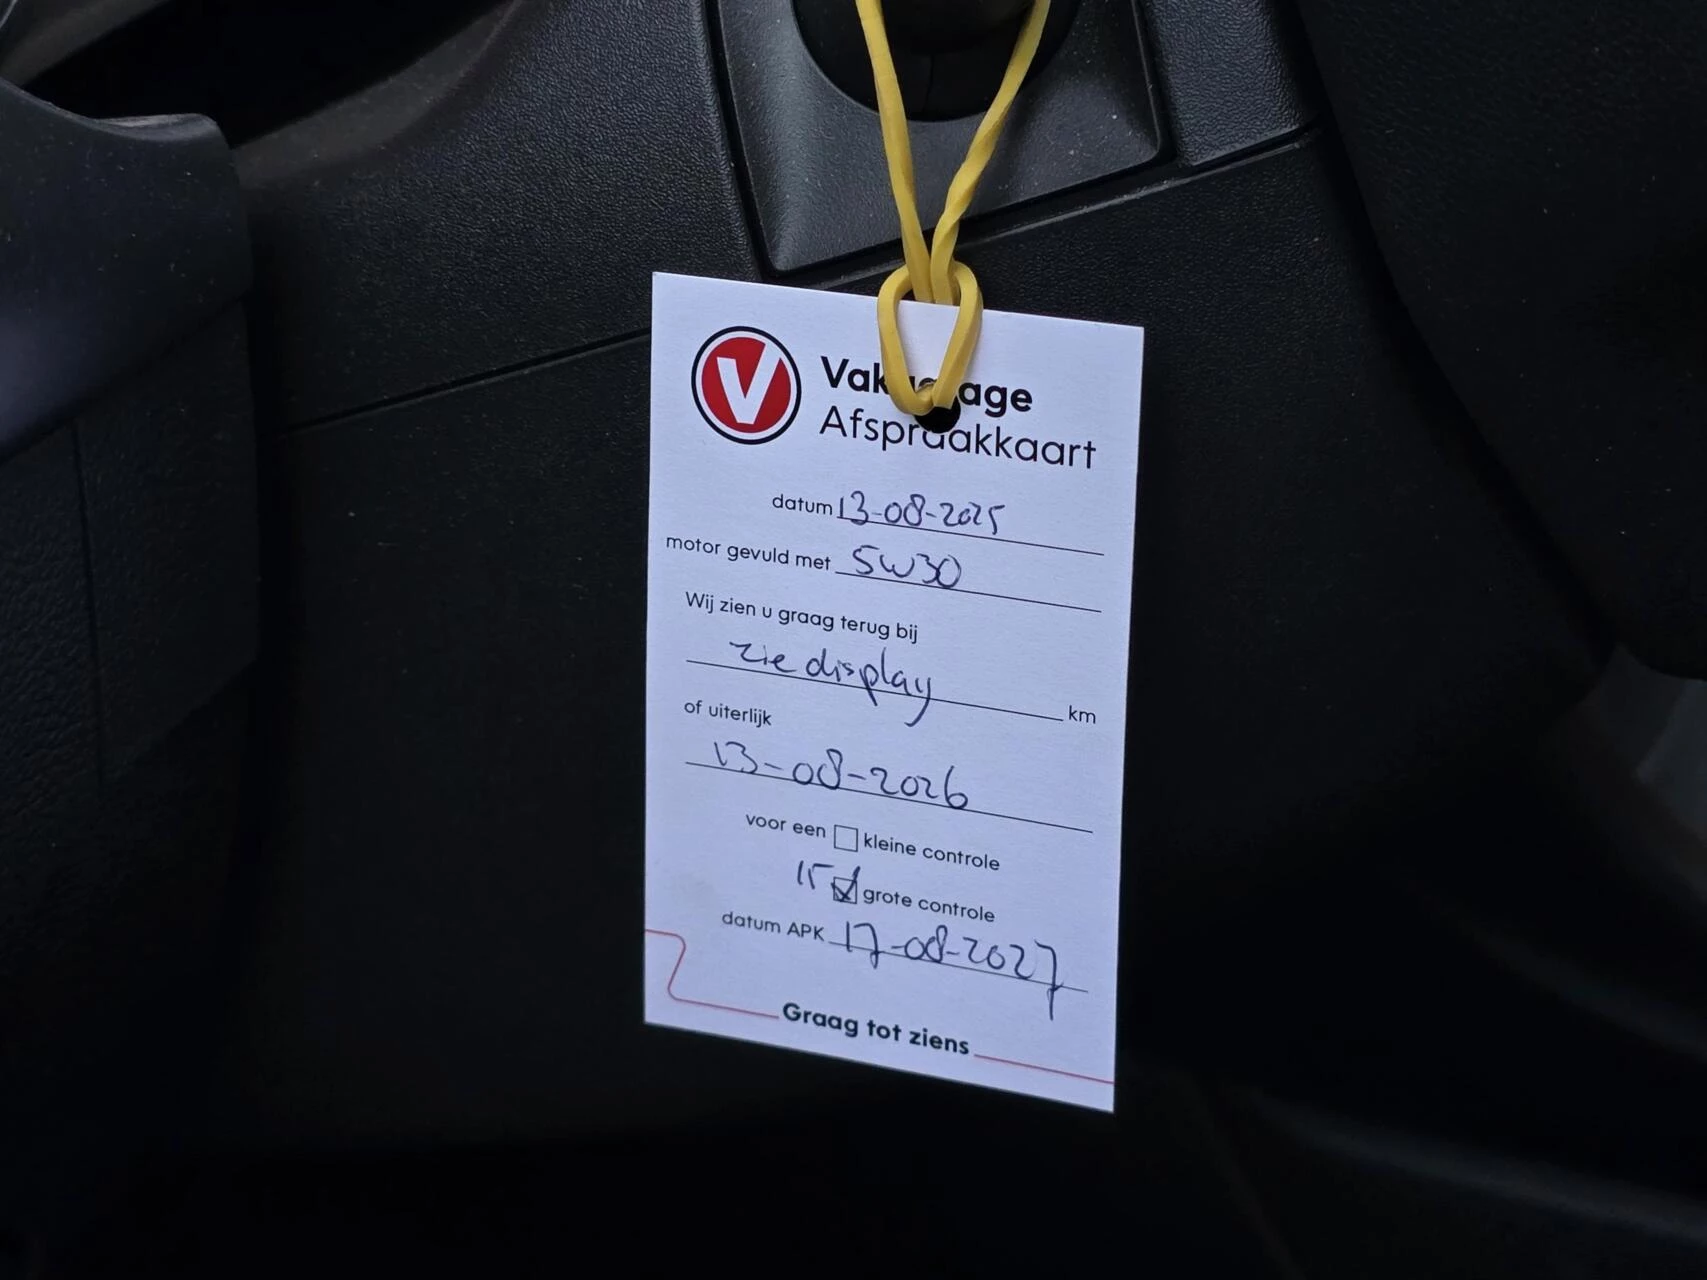 V
Vakgarage
Afspraakkaart
datum 13-08-2025
motor gevuld met 5W30
Wij zien u graag terug bij
zie display km
of uiterlijk
13-08-2026
voor een kleine controle
grote controle
datum APK 17-08-2027
Graag tot ziens